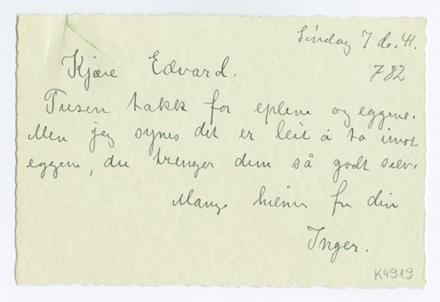 Søndag 7 de. 41.
782
Kjære Edvard.
Tusen takk for eplene og eggene.
Men jeg synes det er leit å ta imot
eggene, du trenger dem så godt selv.
Mange hilsner fra din
Inger.
K4919